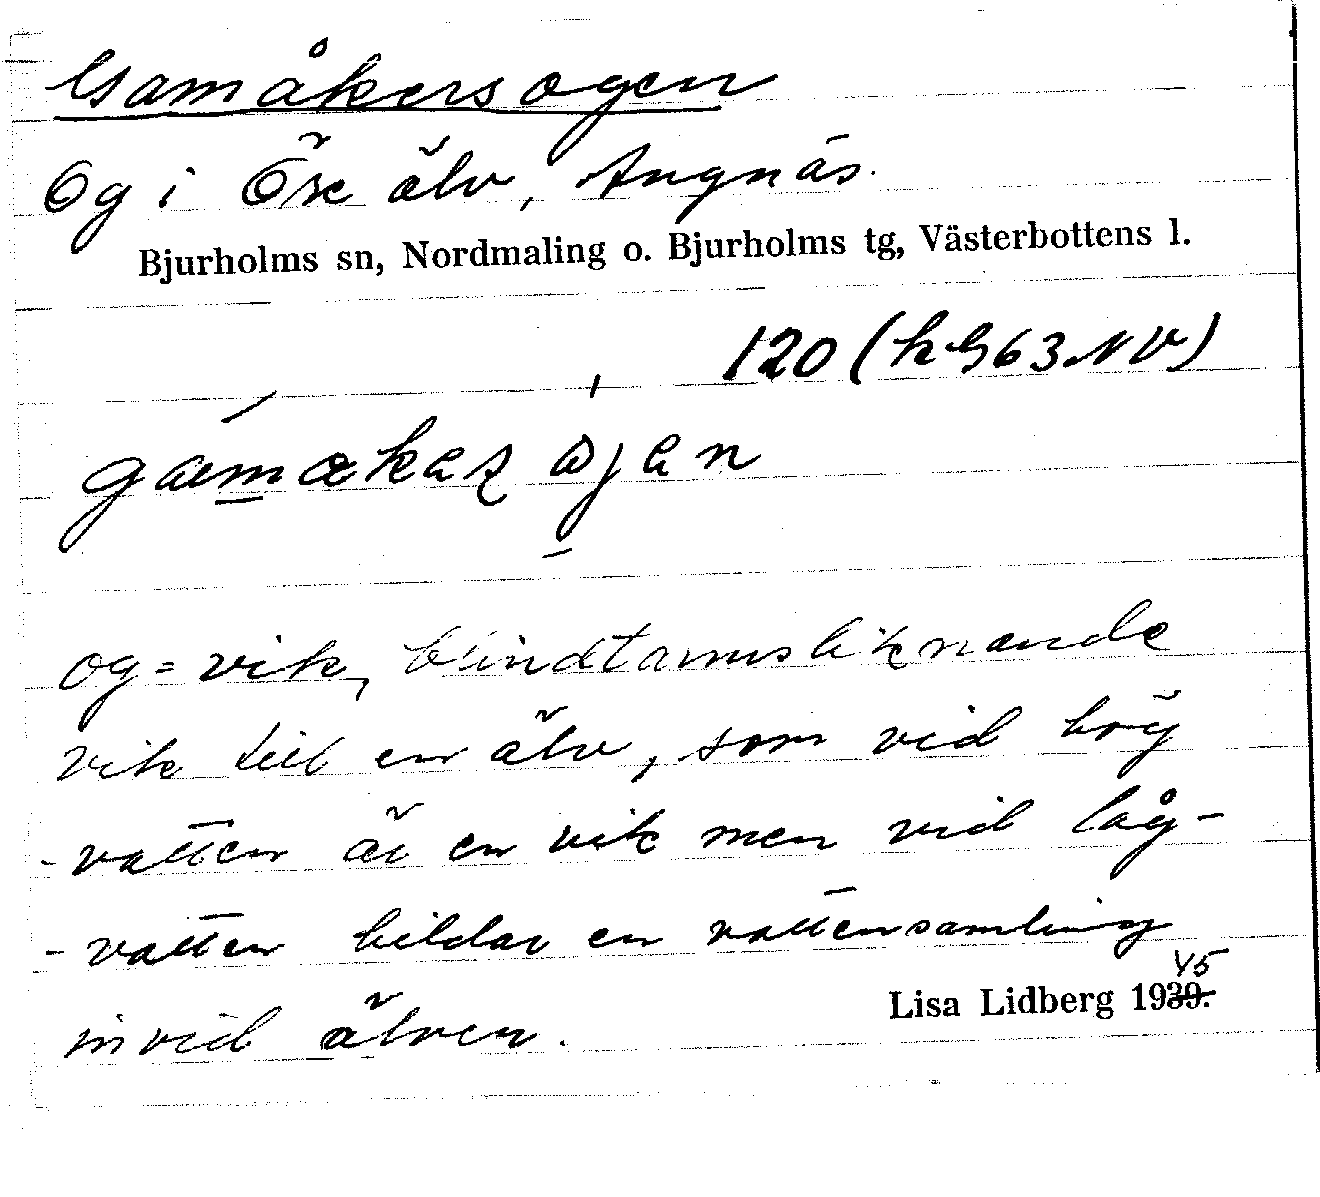 Gamåkersogen
Og i Öre älv, Angnäs.
Bjurholms sn, Nordmaling o. Bjurholms tg, Västerbottens l.
120 (k G63 NV)
og = vik, blindtarmsliknande
vik till en älv, som vid hög
-vatten är en vik men vid låg-
-vatten bildar en vattensamling
invid älven.
45
Lisa Lidberg 1939.